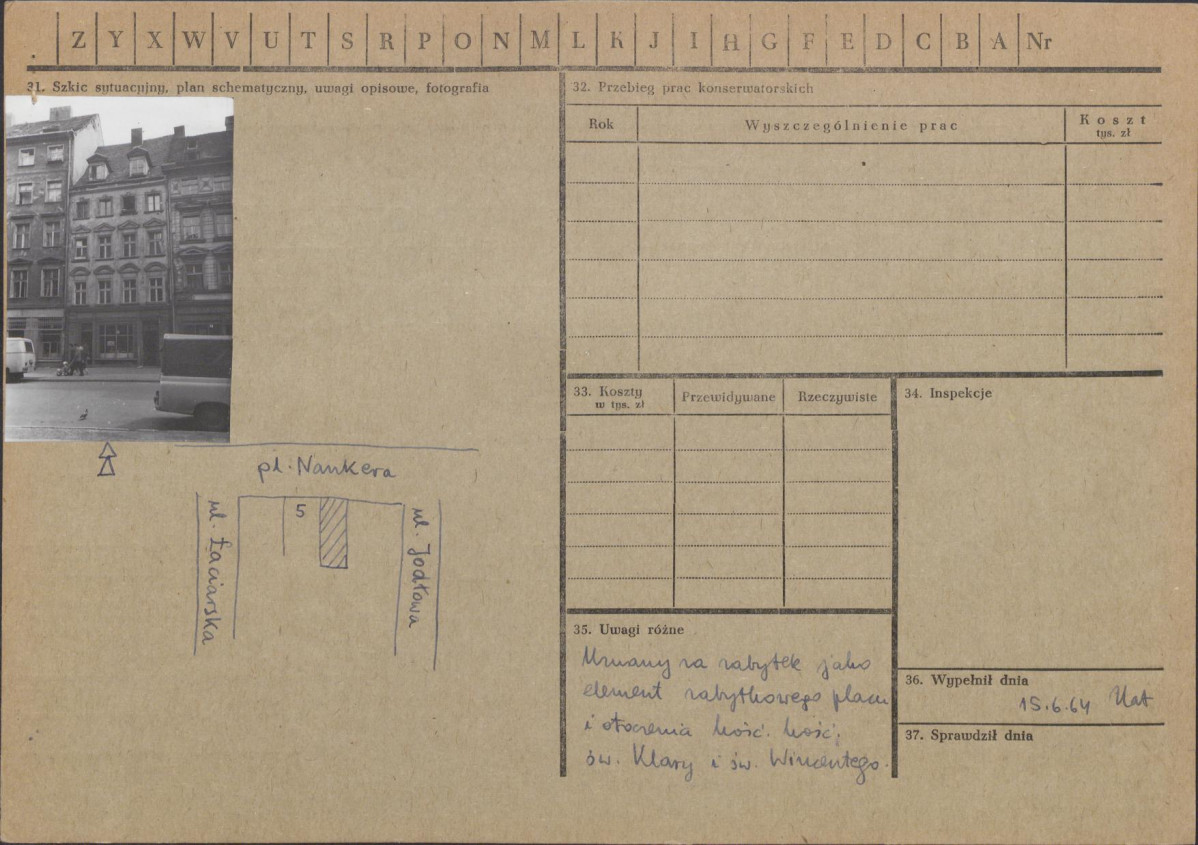 Z Y X W V U T S R P O N M L K J I H G F E D C B A Nr
31. Szkic sytuacyjny, plan schematyczny, uwagi opisowe, fotografia
pl. Nankera
5
ul. Łaciarska
ul. Jodłowa
32. Przebieg prac konserwatorskich
Rok Wyszczególnienie prac Koszt
tys. zł
33. Koszty Przewidywane Rzeczywiste
w tys. zł
34. Inspekcje
35. Uwagi różne
Uznany za zabytek jako
element zabytkowego placu
i otoczenia kość. kość.
św. Klary i św. Wincentego.
36. Wypełnił dnia
15.6.64
37. Sprawdził dnia